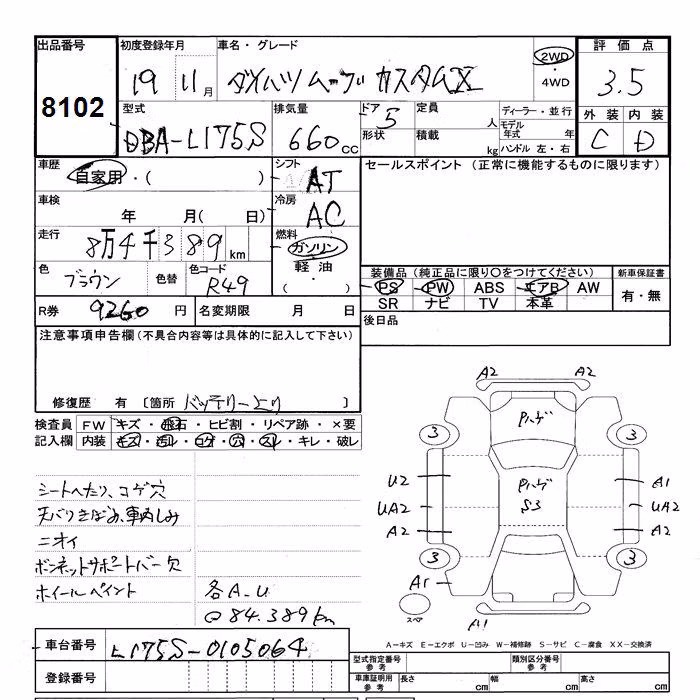 出品番号 初度登録年月 車名・グレード 2WD・4WD 評価点
8102 19 11月 ダイハツ ムーブ カスタムX 3.5
型式 排気量 ドア 定員 人 ディーラー・並行 外装 内装
DBA-L175S 660cc 5 形状 積載 kg モデル年式 年 ハンドル 左・右 C D
車歴 自家用・( ) シフト AT セールスポイント (正常に機能するものに限ります)
車検 年 月( 日) 冷房 AC
走行 8万4千389km 燃料 ガソリン
色 ブラウン 色替 色コード R49 軽油・( )
装備品 (純正品に限り○をつけてください) 新車保証書
PS PW ABS エアB AW 有・無
SR ナビ TV 本革
R券 9260円 名変期限 月 日 後日品
注意事項申告欄(不具合内容等は具体的に記入して下さい)
修復歴 有 〔箇所 バッテリー上り 〕
検査員 FW キズ・飛石・ヒビ割・リペア跡・×要
記入欄 内装 キズ・汚レ・コゲ・穴・スレ・キレ・破レ
シートへたり、コゲ穴
ニオイ
ボンネットサポートバー欠
ホイールペイント 各A-U
84.389km
A2 A2
Pハゲ
3 3
U2 Pハゲ A1
UA2 S3 UA2
A2 A2
3 3
A1
スペア A1
A-キズ E-エクボ U-凹み W-補修跡 S-サビ C-腐食 XX-交換済
車台番号 L175S-0105064
登録番号
型式指定番号 参考 類別区分番号 参考
車庫証明用 参考 長さ cm 幅 cm 高さ cm